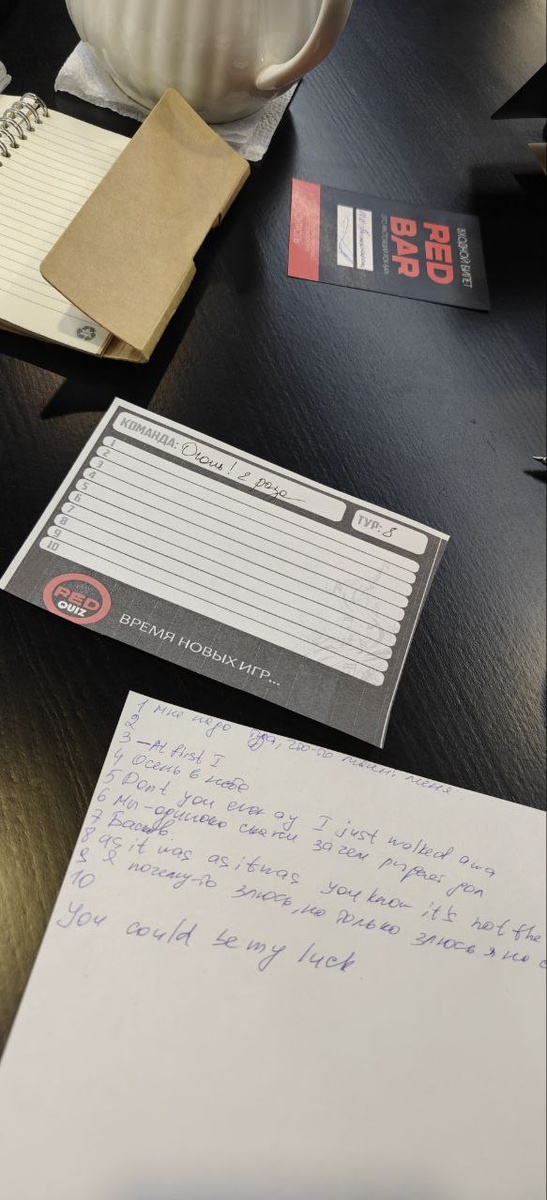 ВХОДНОЙ БИЛЕТ
RED
BAR
КОМАНДА: Огонь! 2 раза
ТУР: 8
1
2
3
4
5
6
7
8
9
10
RED
QUIZ
ВРЕМЯ НОВЫХ ИГР...
1 мне надо туда, что-то манит меня
2
3 – At first I
4 Осень в небе
5 Dont you ever ay I just walked awa
6 Мы - одиноко скажи зачем
7 Баста
8 as it was as it was you know it's not the
9 Я почему-то злюсь, но только злюсь я на с
10
You could be my luck